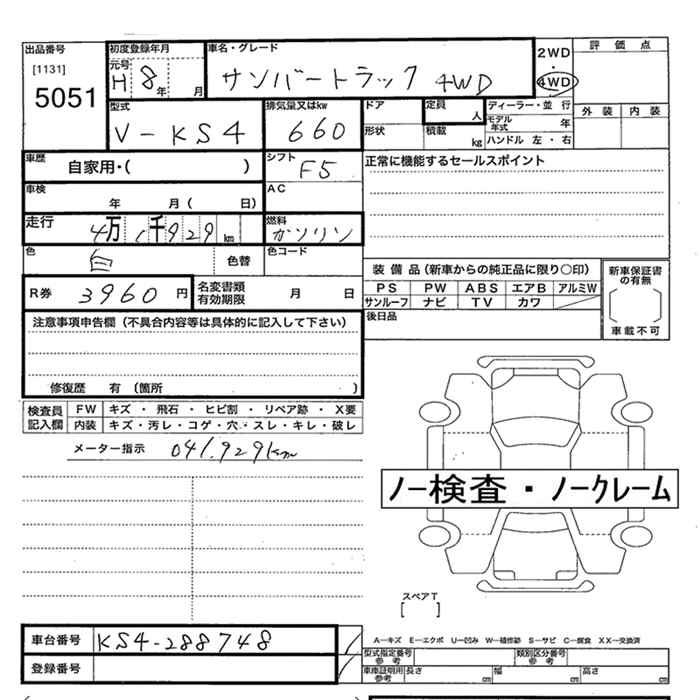 出品番号 初度登録年月 車名・グレード 2WD 評価点
[1131] 元号 H 8年 月 サンバートラック 4WD ・ 4WD
5051 型式 排気量又はkw ドア 定員 人 ディーラー・並 行 外装 内装
V-KS4 660 形状 積載 kg モデル年式 年
ハンドル 左・右
車歴 自家用・( ) シフト F5 正常に機能するセールスポイント
車検 年 月( 日) AC
走行 4万1千929km 燃料 ガソリン
色 白 色替 色コード
装備品(新車からの純正品に限り○印) 新車保証書の有無
R券 3960円 名変書類有効期限 月 日 PS PW ABS エアB アルミW
サンルーフ ナビ TV カワ
注意事項申告欄(不具合内容等は具体的に記入して下さい) 後日品 車載不可
修復歴 有(箇所 )
検査員記入欄 FW キズ ・ 飛石 ・ ヒビ割 ・ リペア跡 ・ X要
内装 キズ・汚レ・コゲ・穴・スレ・キレ・破レ
メーター指示 041,929km
ノー検査・ノークレーム
スペアT
[ ]
車台番号 KS4-288748 A―キズ E―エクボ U―凹み W―補修跡 S―サビ C―腐食 XX―交換済
型式指定番号参考 類別区分番号参考
登録番号 車庫証明用参考 長さ cm 幅 cm 高さ cm